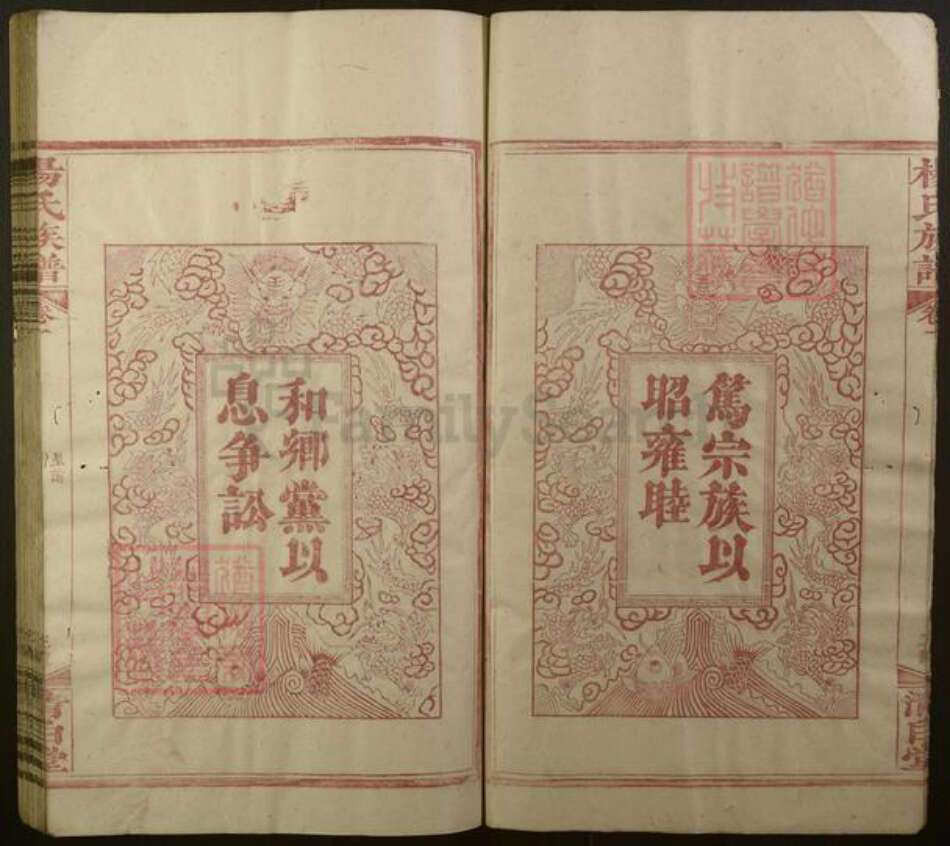 楊氏族譜
篤宗族以
昭雍睦
和鄉黨以
息爭訟
楊氏族譜
清白堂
FamilySearch